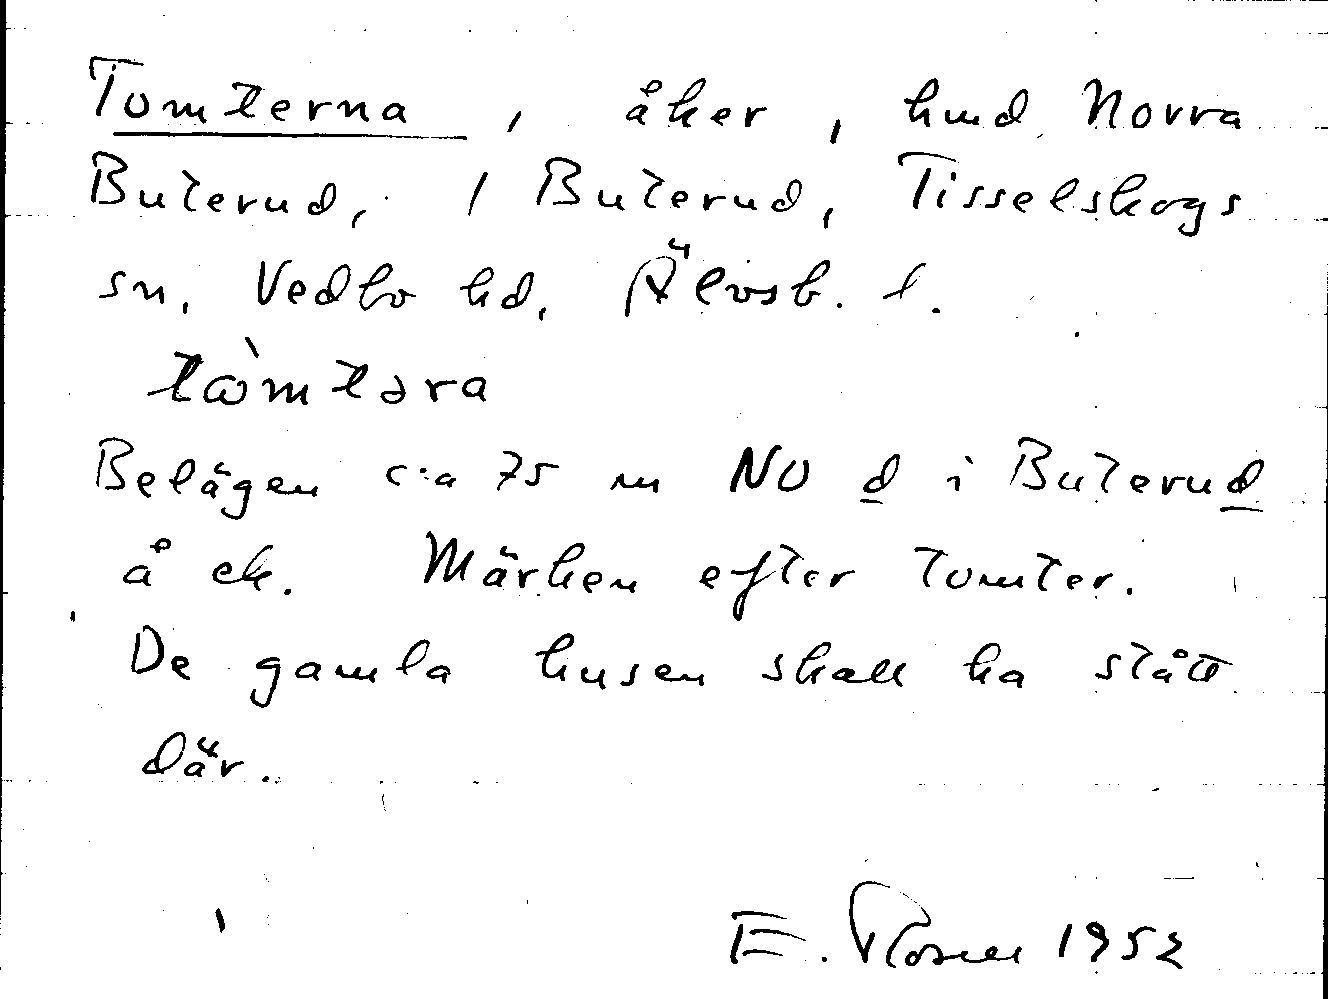 Tomterna, åker, hmd Norra
Buterud, 1 Buterud, Tisselskogs
sn, Vedbo hd, Älvsb. l.
tɷ̀mtəra
Belägen c:a 75 m NO d i Buterud
å ek. Märken efter tomter.
De gamla husen skall ha stått
där.
E. Rosell 1952